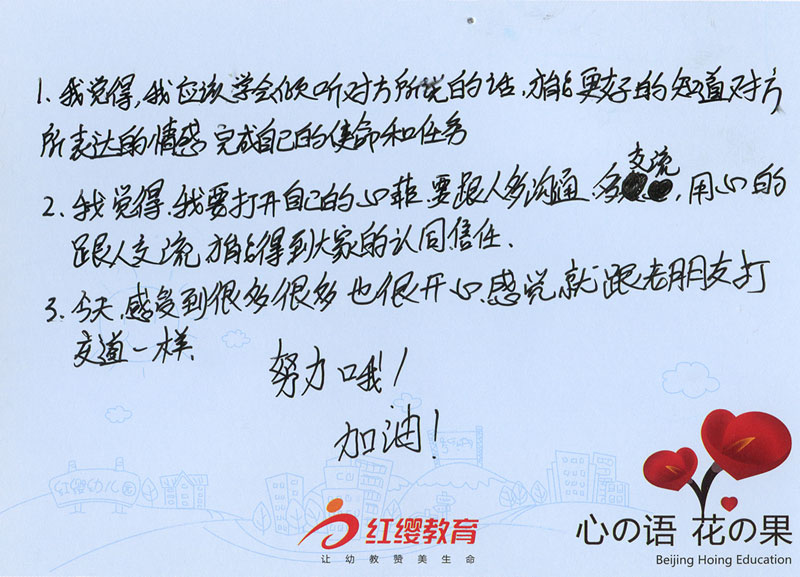 1. 我觉得,我应该学会倾听对方所说的话,才能更好的知道对方
所表达的情感 完成自己的使命和任务
2. 我觉得.我要打开自己的心菲.要跟人多沟通.多交流,用心的
跟人交流.才能得到大家的认同信任.
3. 今天.感受到很多很多 也很开心.感觉就跟老朋友打
交道一样.
努力哦!
加油!
红缨幼儿园
红缨教育
让幼教赞美生命
心の语 花の果
Beijing Hoing Education